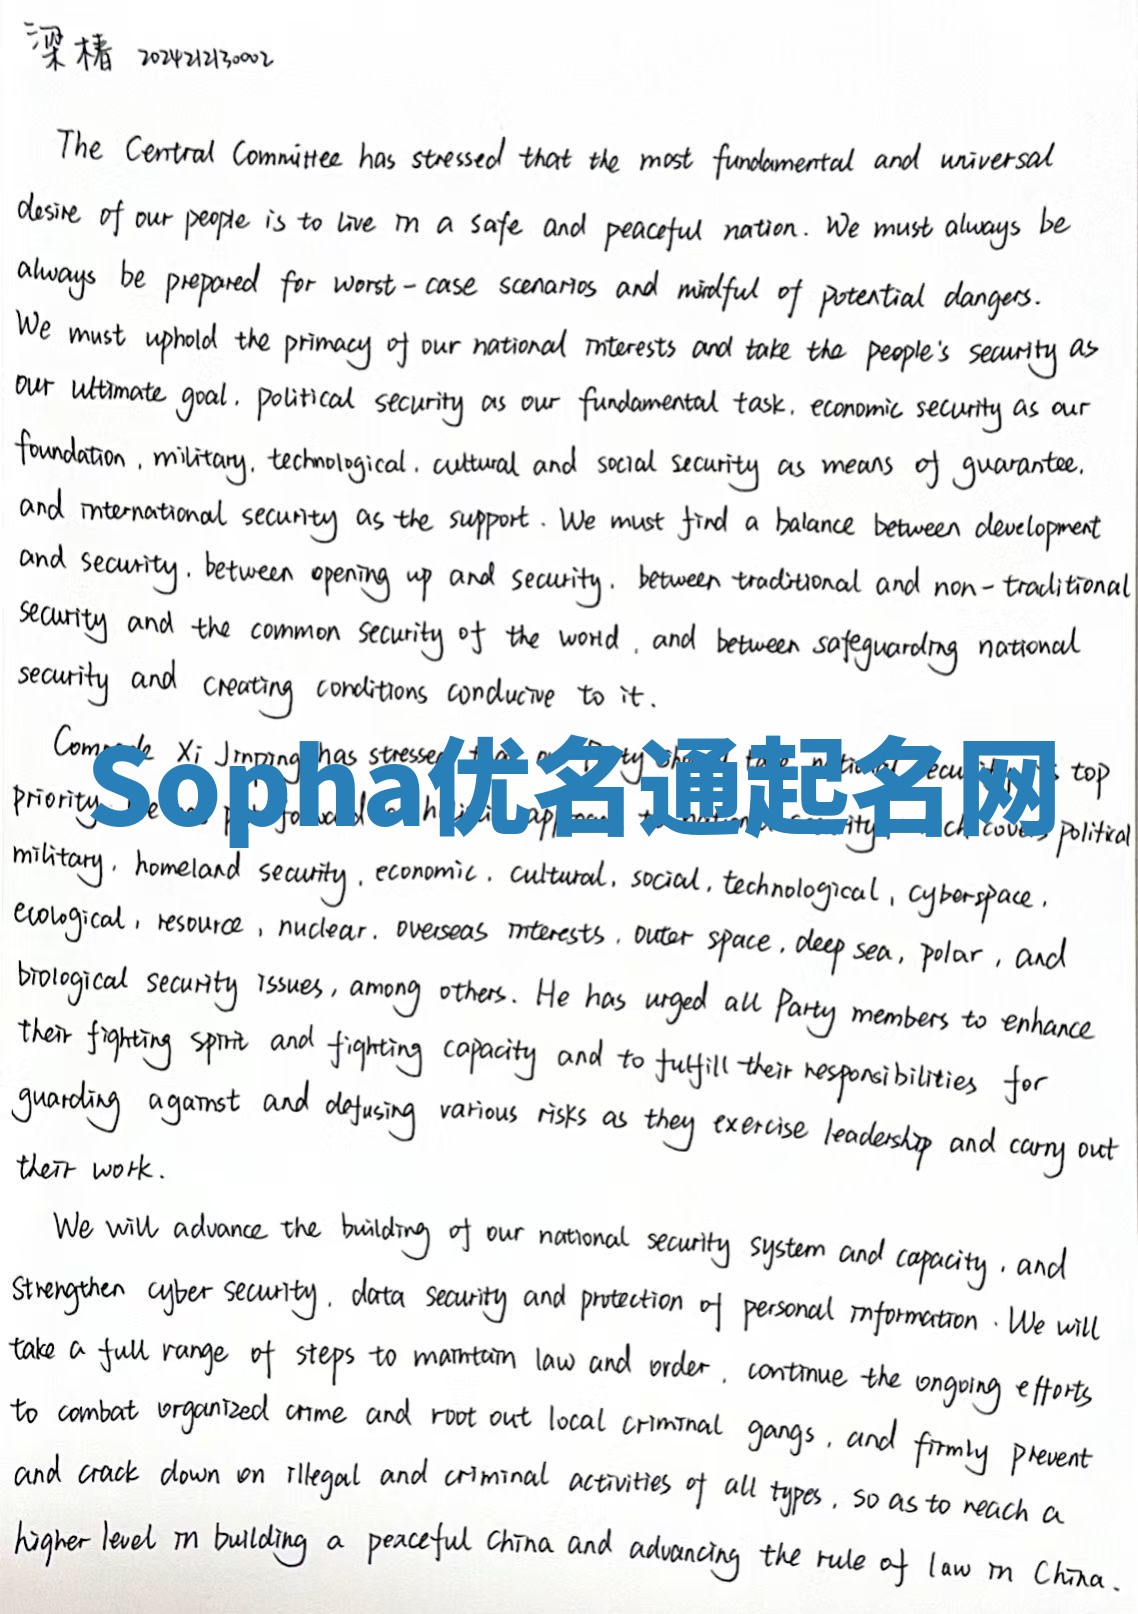 梁椿 2024212130002
The Central Committee has stressed that the most fundamental and universal
desire of our people is to live in a safe and peaceful nation. We must always be
always be prepared for worst-case scenarios and mindful of potential dangers.
We must uphold the primacy of our national interests and take the people's security as
our ultimate goal, political security as our fundamental task, economic security as our
foundation, military, technological, cultural and social security as means of guarantee,
and international security as the support. We must find a balance between development
and security, between opening up and security, between traditional and non-traditional
security and the common security of the world, and between safeguarding national
security and creating conditions conducive to it.
Xi Jinping has stressed top
Sopha优名通起名网
priority political
military, homeland security, economic, cultural, social, technological, cyberspace,
ecological, resource, nuclear, overseas interests, outer space, deep sea, polar, and
biological security issues, among others. He has urged all Party members to enhance
their fighting spirit and fighting capacity and to fulfill their responsibilities for
guarding against and defusing various risks as they exercise leadership and carry out
their work.
We will advance the building of our national security system and capacity, and
strengthen cyber security, data security and protection of personal information. We will
take a full range of steps to maintain law and order, continue the ongoing efforts
to combat organized crime and root out local criminal gangs, and firmly prevent
and crack down on illegal and criminal activities of all types, so as to reach a
higher level in building a peaceful China and advancing the rule of law in China.